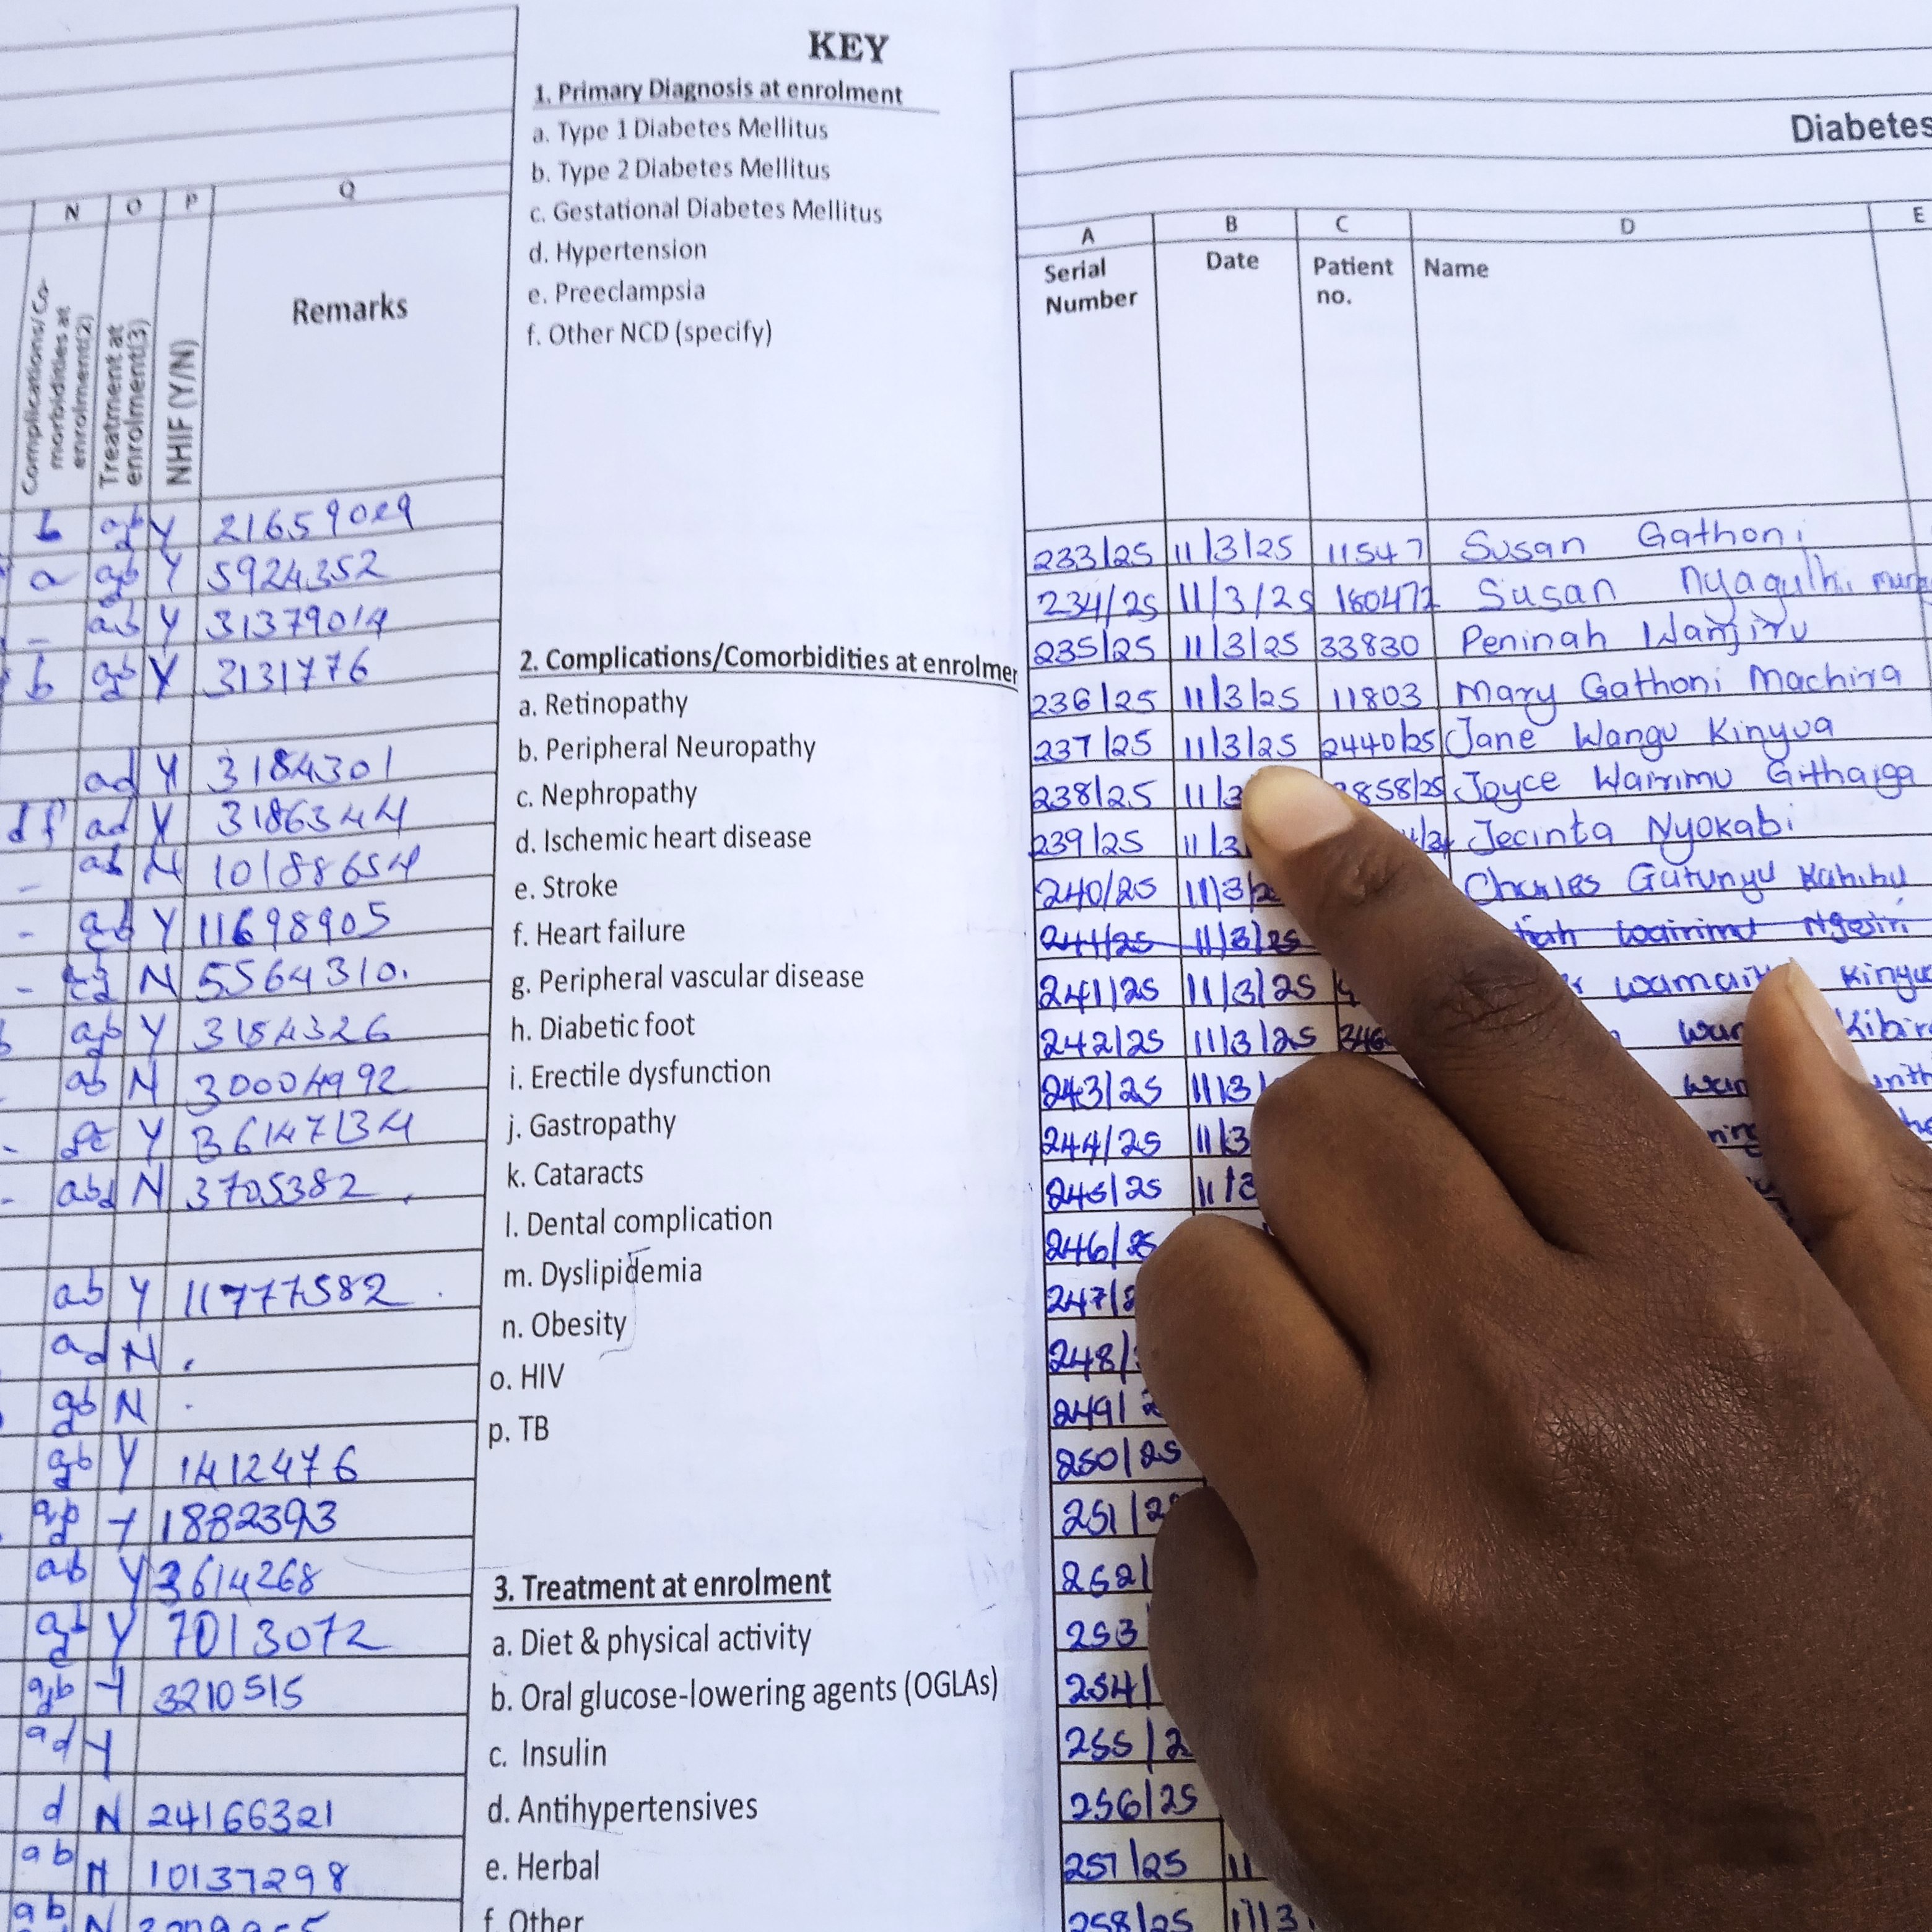 N O P Q
Complications/Co-morbidities at enrolment(2)
Treatment at enrolment(3)
NHIF (Y/N)
Remarks
b Y 21659029
a Y 5924352
- ab Y 31379014
b Y 3131776
ad Y 3184301
df ad Y 3186344
- ab N 10188654
- Y 11698905
- N 5564310.
Y 3184326
ab N 30004992
- Y 36147134
- abd N 3705382
ab Y 11777582
ad N
N
Y 1412476
Y 1882393
ab Y 3614268
Y 7013072
Y 3210515
ad Y
d N 24166321
ab N 10137298
ab N
KEY
1. Primary Diagnosis at enrolment
a. Type 1 Diabetes Mellitus
b. Type 2 Diabetes Mellitus
c. Gestational Diabetes Mellitus
d. Hypertension
e. Preeclampsia
f. Other NCD (specify)
2. Complications/Comorbidities at enrolmen
a. Retinopathy
b. Peripheral Neuropathy
c. Nephropathy
d. Ischemic heart disease
e. Stroke
f. Heart failure
g. Peripheral vascular disease
h. Diabetic foot
i. Erectile dysfunction
j. Gastropathy
k. Cataracts
l. Dental complication
m. Dyslipidemia
n. Obesity
o. HIV
p. TB
3. Treatment at enrolment
a. Diet & physical activity
b. Oral glucose-lowering agents (OGLAs)
c. Insulin
d. Antihypertensives
e. Herbal
f. Other
Diabetes
A B C D E
Serial Number Date Patient no. Name
233/25 11/3/25 11547 Susan Gathoni
234/25 11/3/25 180472 Susan
235/25 11/3/25 33830 Peninah Wanjiru
236/25 11/3/25 11803 Mary Gathoni Machira
237/25 11/3/25 2440/25 Jane Wangu Kinyua
238/25 11/3 858/25 Joyce Wairimu Githaiga
239/25 11/3 Jecinta Nyokabi
240/25 11/3/2 Charles Gatungu Kahihu
241/25 11/3/25 wairimu Ngesiri
241/25 11/3/25 wamaith Kinyu
242/25 11/3/25 346 Kibir
243/25 11/3/
244/25 11/3
245/25 11/3
246/25
247/2
248/
249/2
250/25
251/25
252/
253
254/
255/2
256/25
257/25 11
258/25 11/3